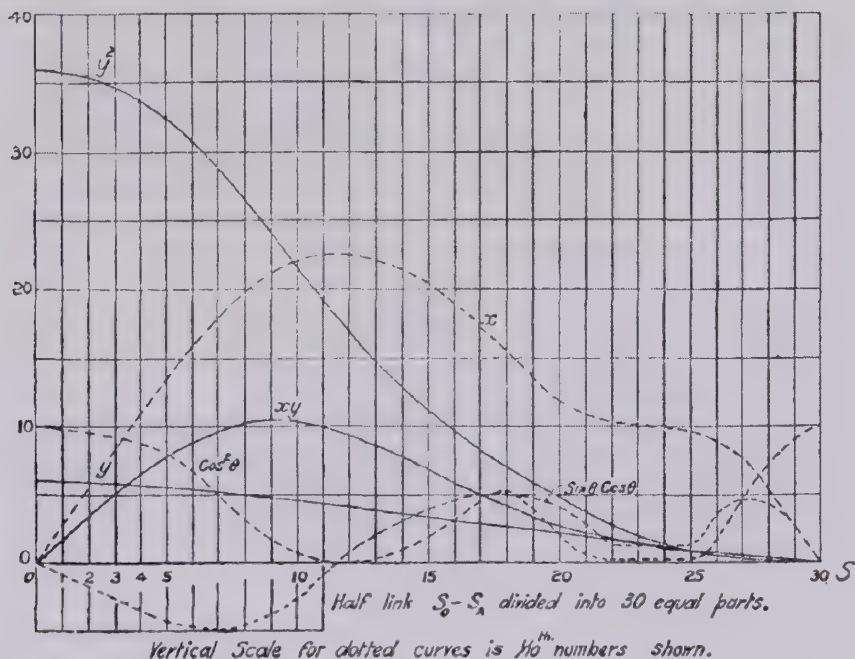 40
y²
30
20
x
xy
10
y
Cos²θ
Sinθ Cosθ
0
0 1 2 3 4 5 10 15 20 25 30 S
Half link S₀-S_A divided into 30 equal parts.
Vertical Scale for dotted curves is 1/10th numbers shown.